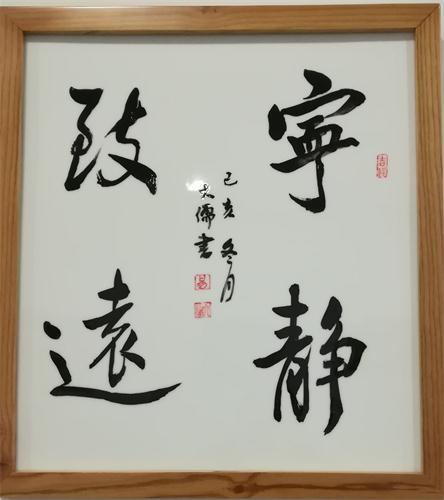 寧靜
致遠
己亥冬月
大儒書